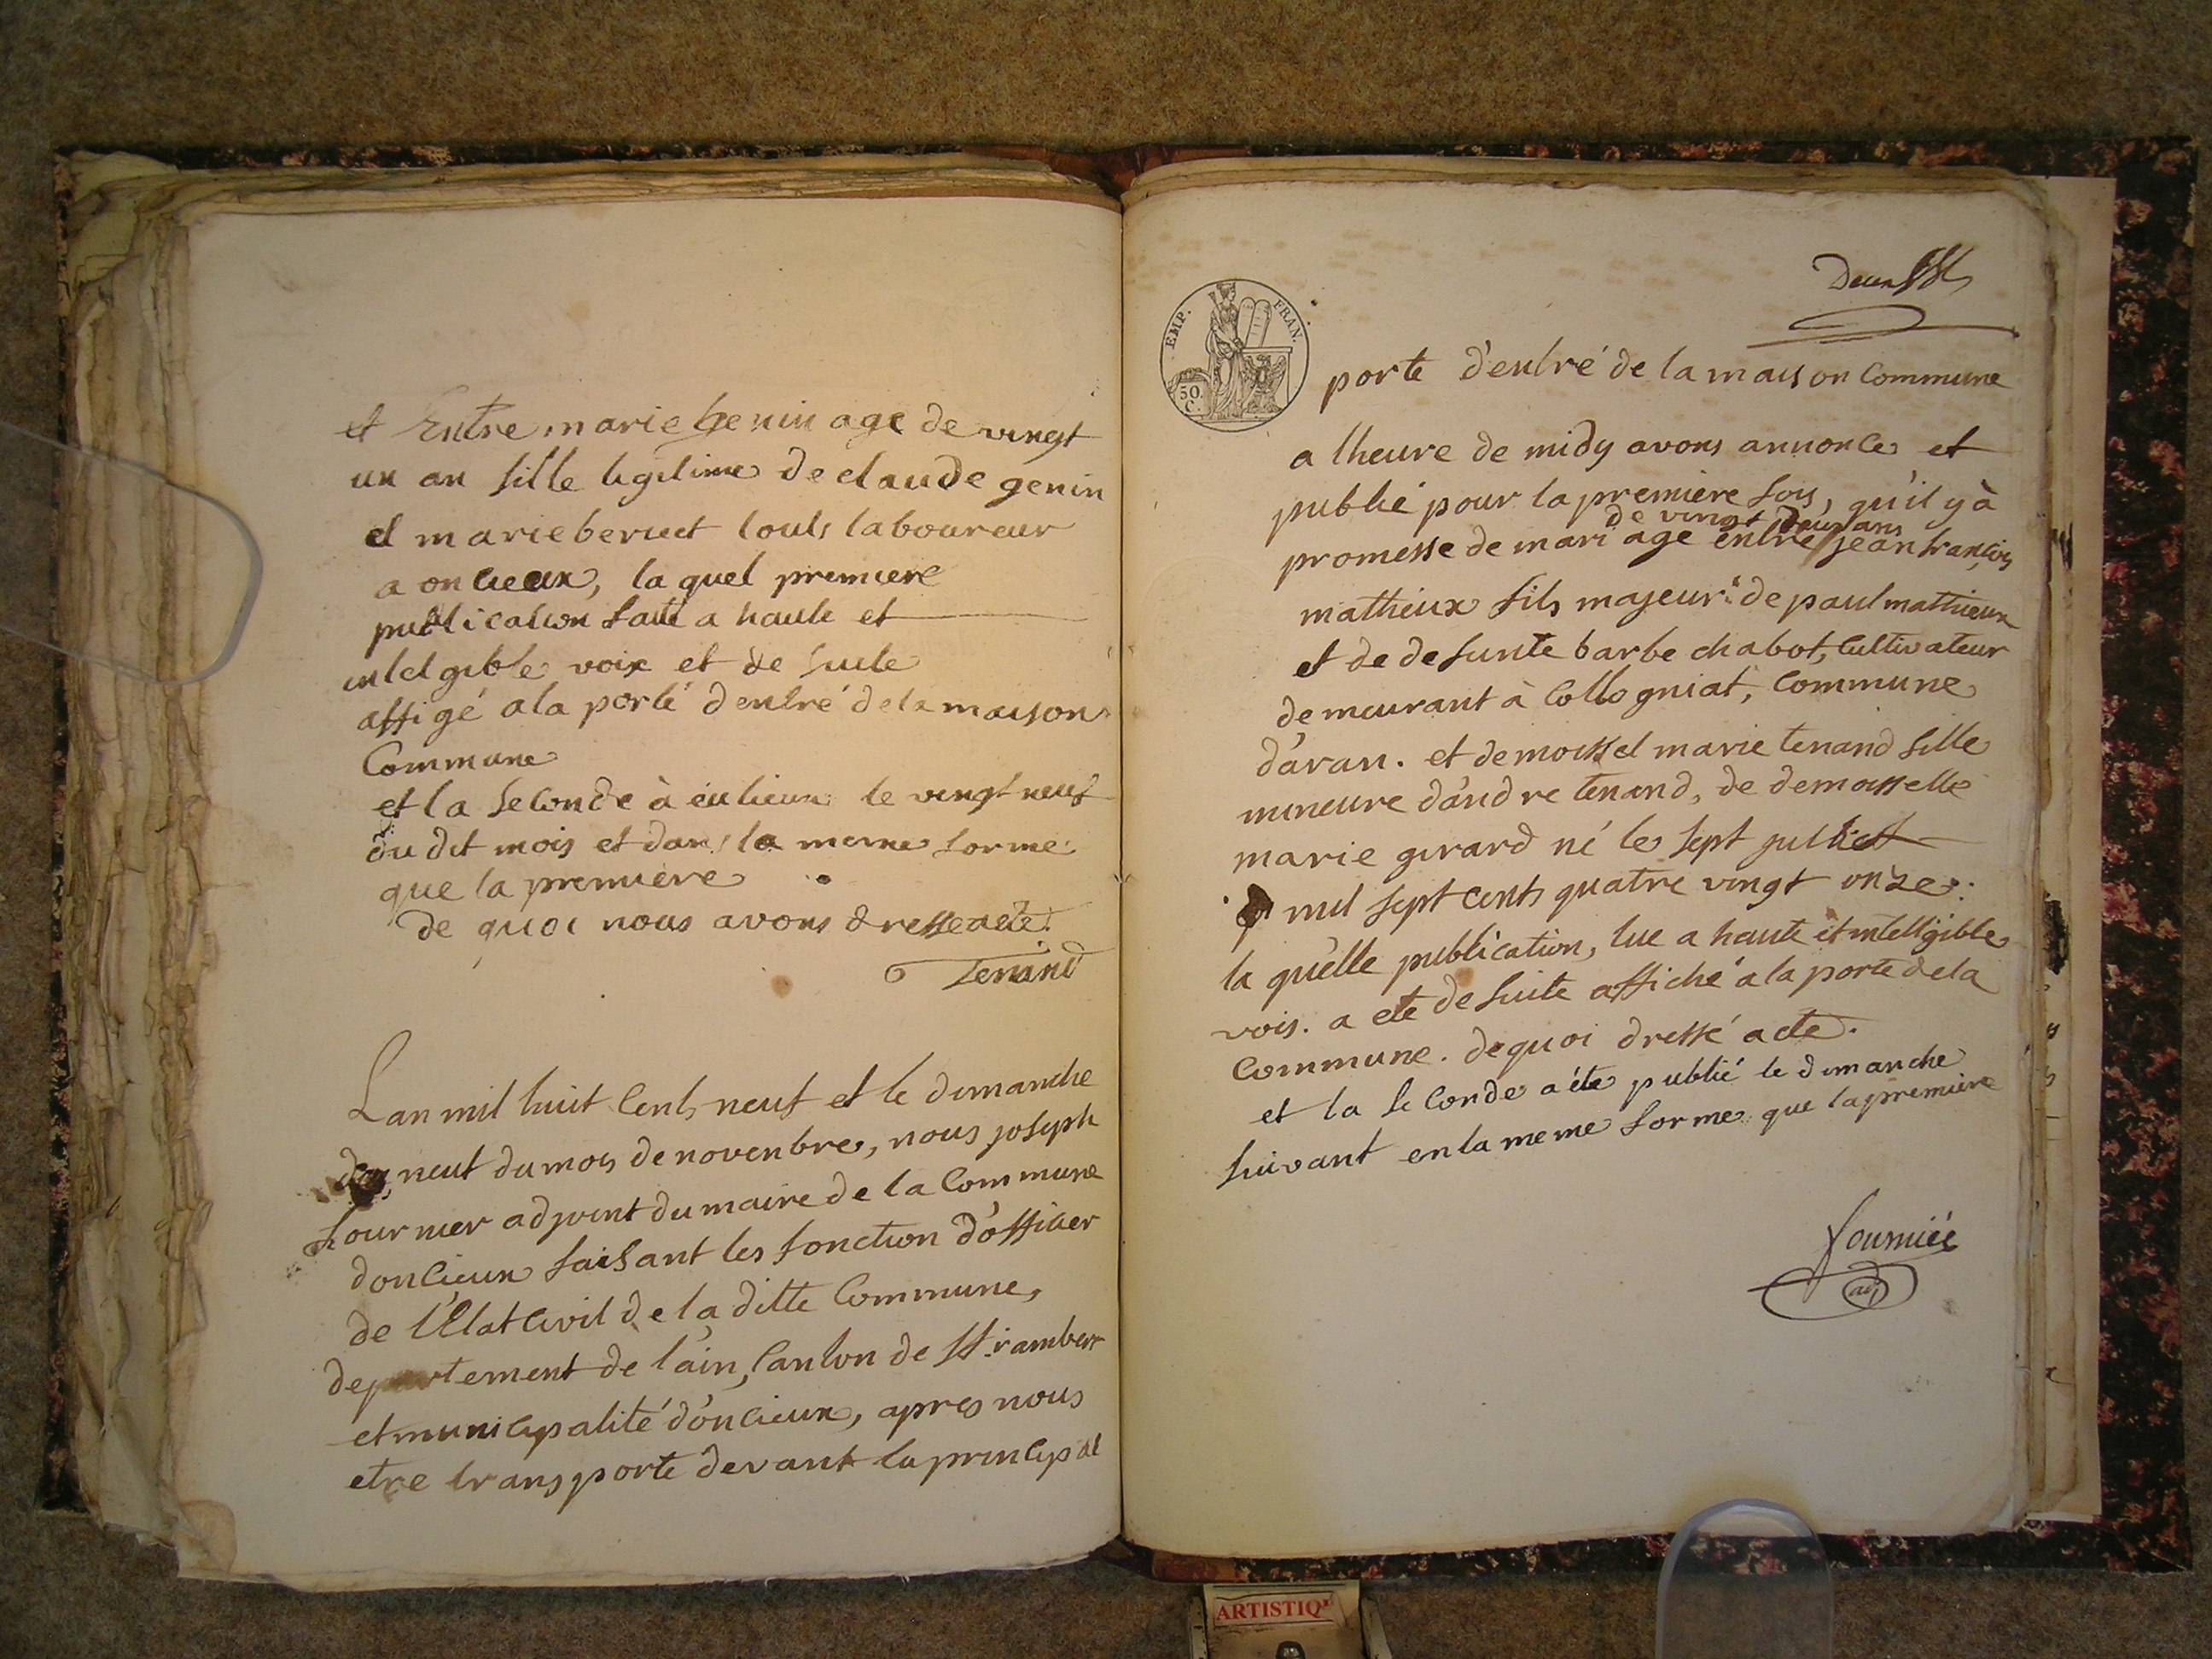 et Entre marie genin age de vingt
un an fille legitime de claude genin
et marie beruet touts laboureur
a oncieux, la quel premiere
publication faitt a haute et
intelgible voix et de suite
affigé a la porté dentré dela maison
Commune
et la seconde à eu lieux le vingt neuf
du dit mois et dans la meme forme
que la premiere
de quoi nous avons dressé acte.
Tenand
Lan mil huit Cents neuf et le dimanche
dix neuf du mois de novenbre, nous joseph
fournier adjoint du maire de la Commune
doncieux faisant les fonction d'officier
de l'Etat Civil de la ditte Commune,
departement de l'ain, Canton de St. rambert
et municipalité d'oncieux, apres nous
etre transporté devant la principal
EMP. FRAN.
50. C.
porte d'entré de la maison Commune
a lheure de midy avons annoncé et
publié pour la première fois, qu'il y à
de vingt deux ans
promesse de mariage entre jean françois
mathieux fils majeur de paul mathieux
et de defunte barbe chabot, Cultivateur
demeurant à Collogniat, Commune
d'aran. et demoissel marie tenand fille
mineure d'andre tenand, de demoisselle
marie girard né le sept juilliett
mil sept cents quatre vingt onze.
la quelle publication, lue a haute et intelligible
vois. a eté de suite affiché a la porte dela
Commune. de quoi dressé acte.
et la seconde a été publié le dimanche
suivant en la meme forme que la premiere
fournier
adj
ARTISTIQ